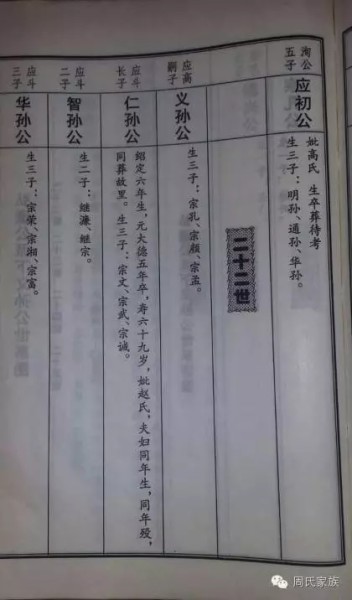 洵公五子
应初公
妣高氏 生卒葬待考
生三子：明孙、通孙、华孙。
二十二世
应高嗣子
义孙公
生三子：宗孔、宗颜、宗孟。
应斗长子
仁孙公
绍定六年生，元大德五年卒，寿六十九岁，妣赵氏，夫妇同年生，同年殁，
同葬故里。生三子：宗文、宗武、宗诚。
应斗二子
智孙公
生二子：继濂、继宗。
应斗三子
华孙公
生三子：宗荣、宗湘、宗富。
周氏家族